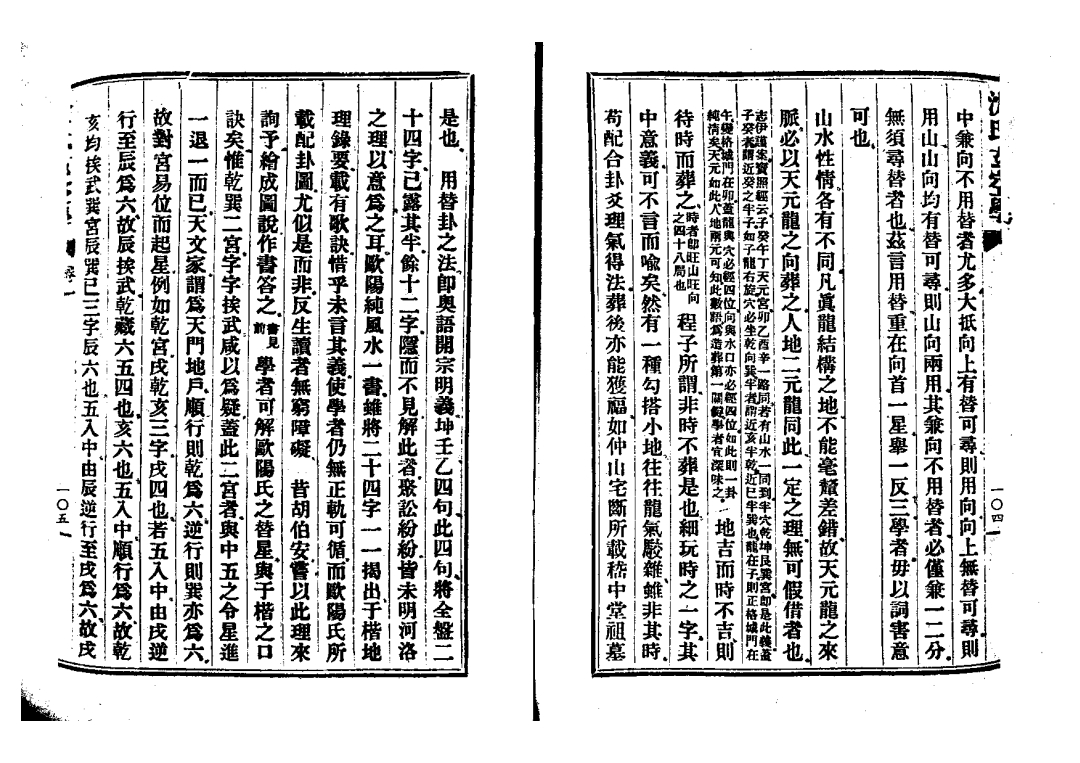 沈氏玄空學
一〇四
中兼向不用替者尤多大抵向上有替可尋則用向向上無替可尋則
用山山向均有替可尋則山向兩用其兼向不用替者必僅兼一二分
無須尋替者也茲言用替重在向首一星舉一反三學者毋以詞害意
可也
山水性情各有不同凡眞龍結構之地不能毫釐差錯故天元龍之來
脈必以天元龍之向葬之人地二元龍同此一定之理無可假借者也
志伊謹案寶照經云子癸午丁天元宮卯乙酉辛一路同若有山水一同到半穴乾坤艮巽宮卽是此義蓋
子癸者謂近癸之半子如子龍右旋穴必坐乾向巽半者謂近亥半乾近巳半巽也龍在子則正格城門在
午變格城門在卯蓋龍與穴必經四位向與水口亦必經四位如此則一卦
純清矣天元如此人地兩元可知此數語爲造葬第一關鍵學者宜深味之
地吉而時不吉則
待時而葬之時者卽旺山旺向之四十八局也程子所謂非時不葬是也細玩時之一字其
中意義可不言而喩矣然有一種勾搭小地往往龍氣駁雜雖非其時
苟配合卦爻理氣得法葬後亦能獲福如仲山宅斷所載嵇中堂祖墓
是也 用替卦之法卽奥語開宗明義坤壬乙四句此四句將全盤二
十四字已露其半餘十二字隱而不見解此者聚訟紛紛皆未明河洛
之理以意爲之耳歐陽純風水一書雖將二十四字一一揭出于楷地
理錄要載有歌訣惜乎未言其義使學者仍無正軌可循而歐陽氏所
載配卦圖尤似是而非反生讀者無窮障礙 昔胡伯安嘗以此理來
詢予繪成圖說作書答之書見前學者可解歐陽氏之替星與于楷之口
訣矣惟乾巽二宮字字挨武咸以爲疑蓋此二宮者與中五之令星進
一退一而已天文家謂爲天門地戶順行則乾爲六逆行則巽亦爲六
故對宮易位而起星例如乾宮戌乾亥三字戌四也若五入中由戌逆
行至辰爲六故辰挨武乾藏六五四也亥六也五入中順行爲六故乾
亥均挨武巽宮辰巽巳三字辰六也五入中由辰逆行至戌爲六故戌
一〇五